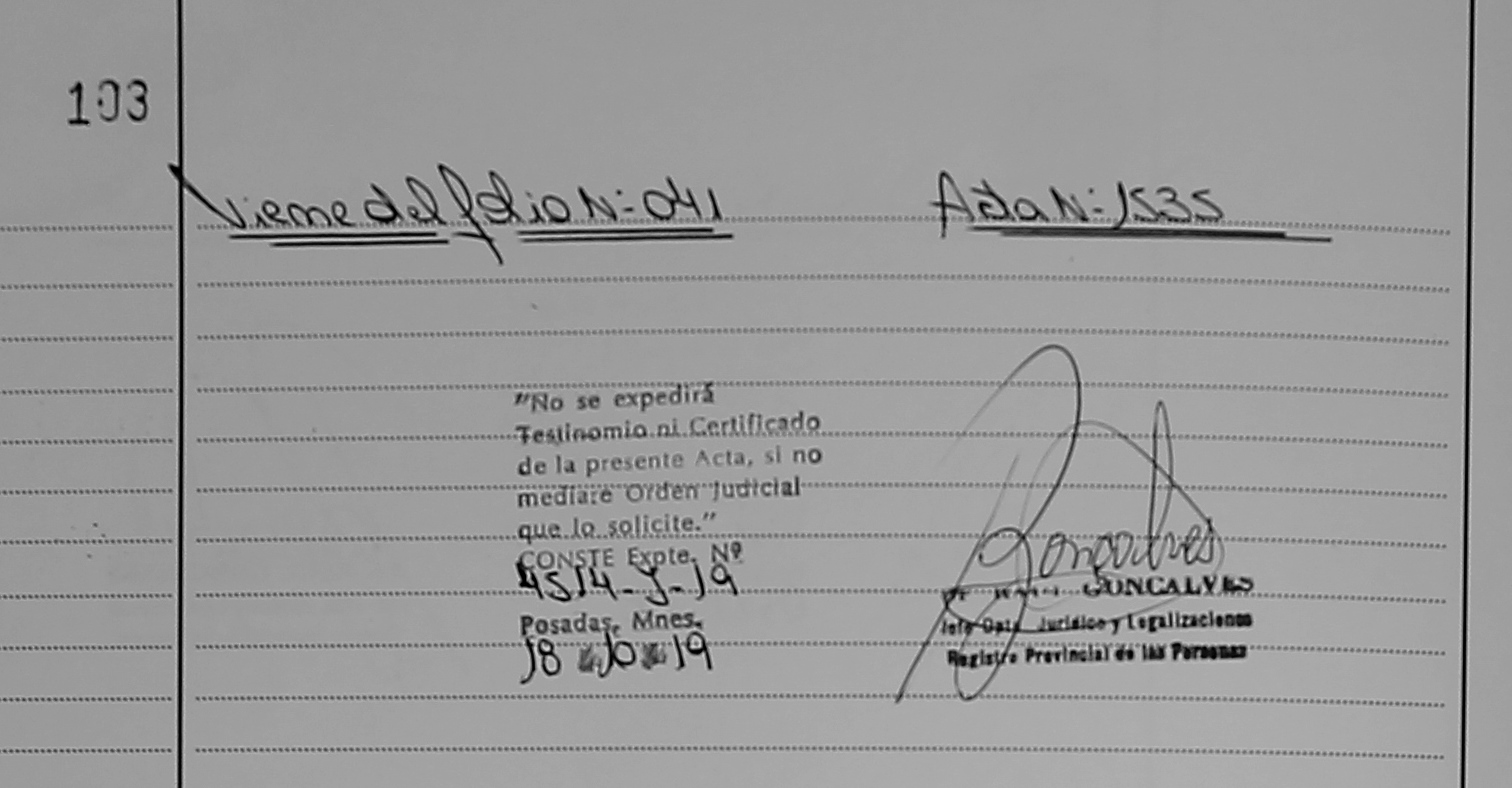 103
Viene del folio N: 041
Acta N: 1535
"No se expedirá
Testinomio ni Certificado
de la presente Acta, si no
mediare Orden Judicial
que lo solicite."
CONSTE Expte. Nº
4514-J-19
Posadas, Mnes.
18 10 19
Goncalves
GONCALVES
Jefe Dpto. Jurídico y Legalizaciones
Registro Provincial de las Personas